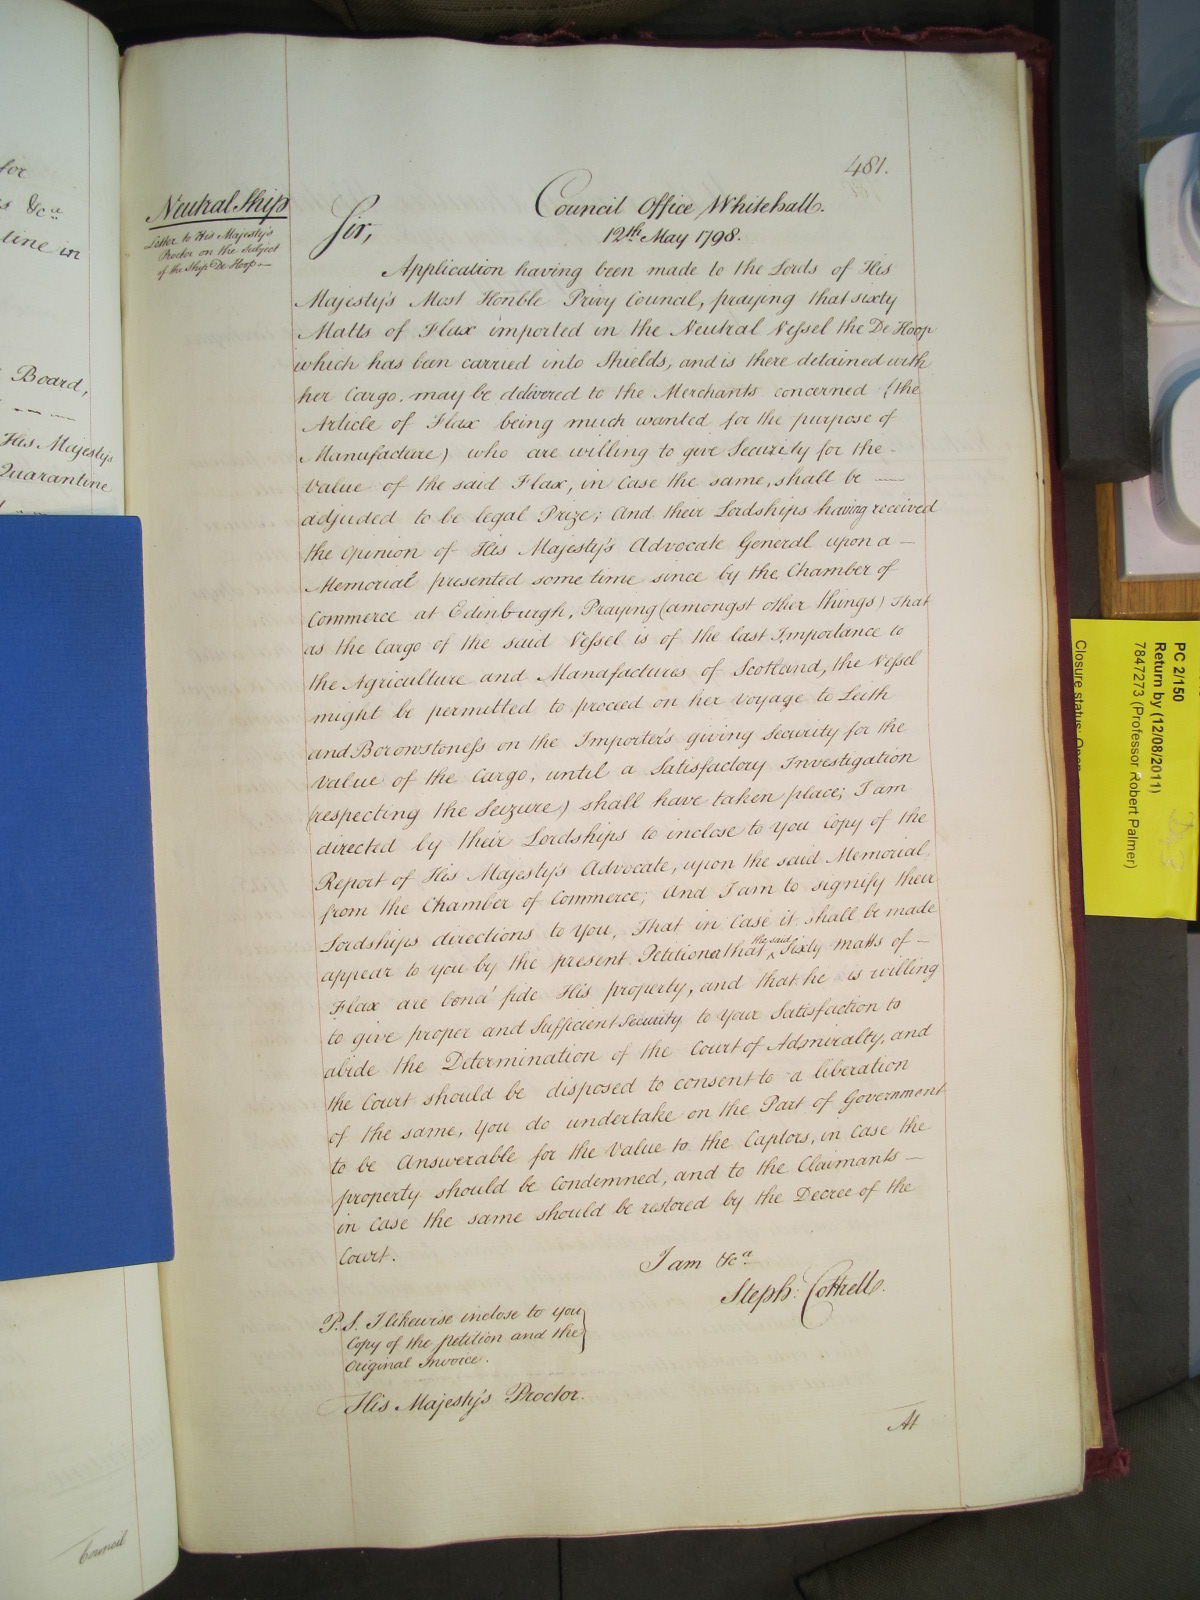 for
s &ca
line in
Board,
His Majestys
Quarantine
Council
481.
Neutral Ship
Letter to His Majesty's
Proctor on the Subject
of the Ship De Hoop —
Council Office Whitehall.
12th May 1798.
Sir,
Application having been made to the Lords of His
Majesty's Most Honble Privy Council, praying that sixty
Matts of Flax imported in the Neutral Vessel the De Hoop
which has been carried into Shields, and is there detained with
her Cargo, may be delivered to the Merchants concerned (the
Article of Flax being much wanted for the purpose of
Manufacture) who are willing to give Security for the
Value of the said Flax, in Case the same, shall be —
adjuded to be legal Prize; And their Lordships having received
the opinion of His Majesty's Advocate General upon a —
Memorial presented some time since by the Chamber of
Commerce at Edinburgh, Praying (amongst other things) That
as the Cargo of the said Vessel is of the last Importance to
the Agriculture and Manufactures of Scotland, the Vessel
might be permitted to proceed on her voyage to Leith
and Borowstoness on the Importers giving Security for the
Value of the Cargo, until a Satisfactory Investigation
(respecting the Seizure) shall have taken place; I am
directed by their Lordships to inclose to you Copy of the
Report of His Majesty's Advocate, upon the said Memorial,
from the Chamber of Commerce; And I am to signify their
Lordships directions to you, That in Case it shall be made
appear to you by the present Petitioner that the said Sixty matts of —
Flax are bonâ fide His property, and that he is willing
to give proper and Sufficient Security to your Satisfaction to
abide the Determination of the Court of Admiralty, and
the Court should be disposed to consent to a liberation
of the same, you do undertake on the Part of Government
to be Answerable for the Value to the Captors, in Case the
property should be Condemned, and to the Claimants —
in Case the same should be restored by the Decree of the
Court.
I am &ca
Steph: Cottrell.
P.S. I likewise inclose to you
Copy of the petition and the
Original Invoice.
His Majesty's Proctor.
At
PC 2/150
Return by (12/08/2011)
7847273 (Professor Robert Palmer)
Closure status: Open